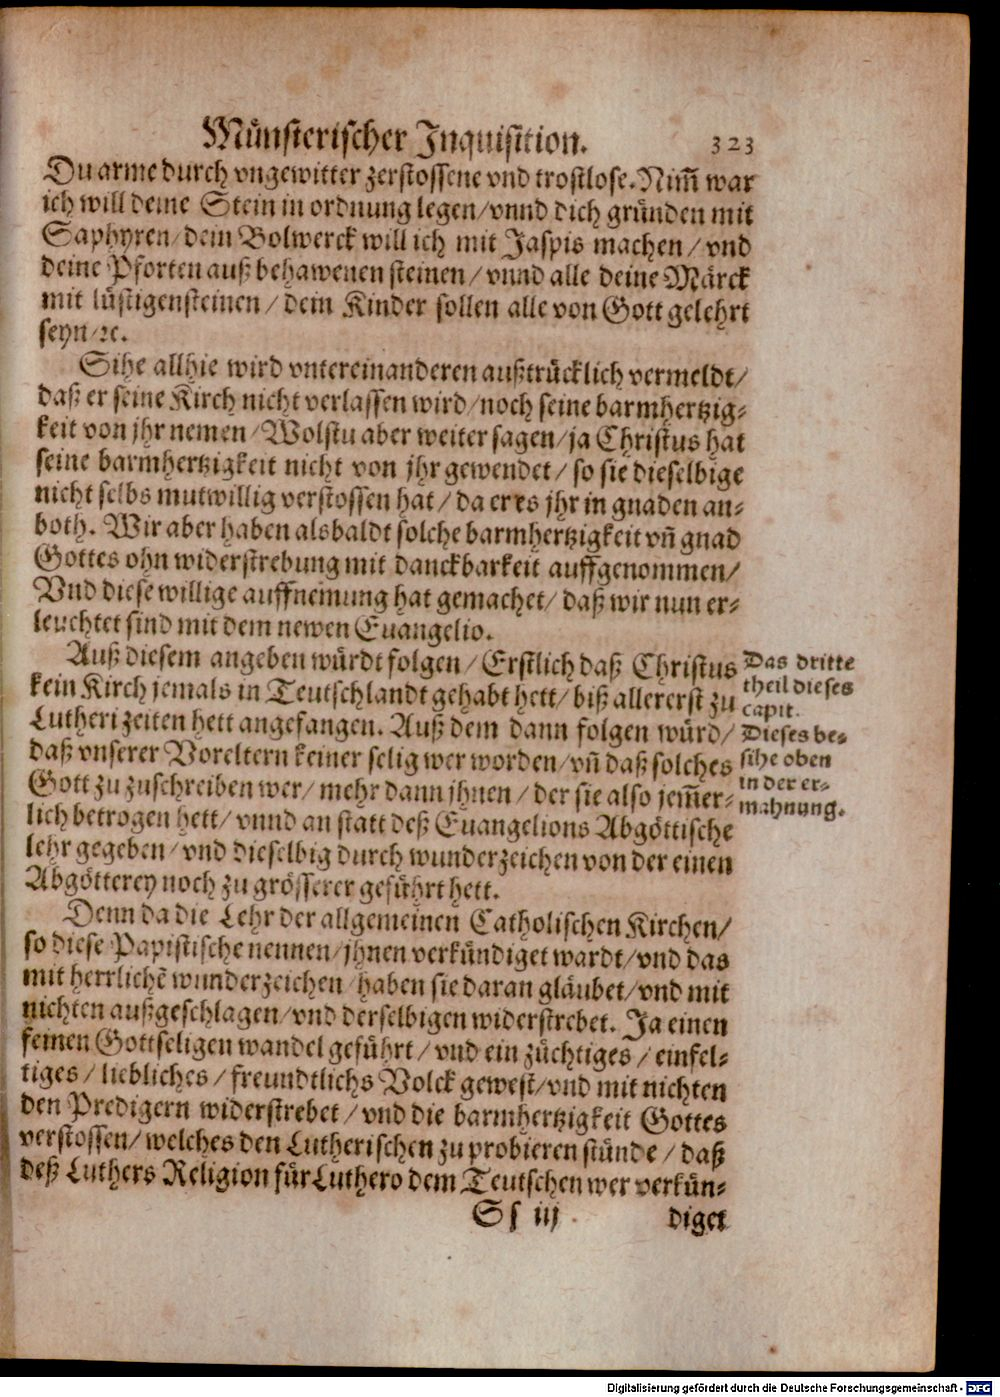 Münsterischer Inquisition. 323
Du arme durch vngewitter zerstossene vnd trostlose. Nim̃ war
ich will deine Stein in ordnung legen / vnnd dich gründen mit
Saphyren / dein Bolwerck will ich mit Jaspis machen / vnd
deine Pforten auß behawenen steinen / vnnd alle deine Märck
mit lüstigensteinen / dein Kinder sollen alle von Gott gelehrt
seyn / ꝛc.
Sihe allhie wird vntereinanderen außtrücklich vermeldt /
daß er seine Kirch nicht verlassen wird / noch seine barmhertzig⸗
keit von jhr nemen / Wolstu aber weiter sagen / ja Christus hat
seine barmhertzigkeit nicht von jhr gewendet / so sie dieselbige
nicht selbs mutwillig verstossen hat / da er es jhr in gnaden an⸗
both. Wir aber haben alsbaldt solche barmhertzigkeit vñ gnad
Gottes ohn widerstrebung mit danckbarkeit auffgenommen /
Vnd diese willige auffnemung hat gemachet / daß wir nun er⸗
leuchtet sind mit dem newen Euangelio.
Auß diesem angeben würdt folgen / Erstlich daß Christus
kein Kirch jemals in Teutschlandt gehabt hett / biß allererst zu
Lutheri zeiten hett angefangen. Auß dem dann folgen würd /
daß vnserer Voreltern keiner selig wer worden / vñ daß solches
Gott zu zuschreiben wer / mehr dann jhnen / der sie also jem̃er⸗
lich betrogen hett / vnnd an statt deß Euangelions Abgöttische
lehr gegeben / vnd dieselbig durch wunderzeichen von der einen
Abgötterey noch zu grösserer geführt hett.
Das dritte
theil dieses
capit.
Dieses be⸗
sihe oben
in der er⸗
mahnung.
Denn da die Lehr der allgemeinen Catholischen Kirchen /
so diese Papistische nennen / jhnen verkündiget wardt / vnd das
mit herrlichẽ wunderzeichen / haben sie daran gläubet / vnd mit
nichten außgeschlagen / vnd derselbigen widerstrebet. Ja einen
feinen Gottseligen wandel geführt / vnd ein züchtiges / einfel⸗
tiges / liebliches / freundtlichs Volck gewest / vnd mit nichten
den Predigern widerstrebet / vnd die barmhertzigkeit Gottes
verstossen / welches den Lutherischen zu probieren stünde / daß
deß Luthers Religion für Luthero dem Teutschen wer verkün⸗
Ss iij diget
Digitalisierung gefördert durch die Deutsche Forschungsgemeinschaft - DFG